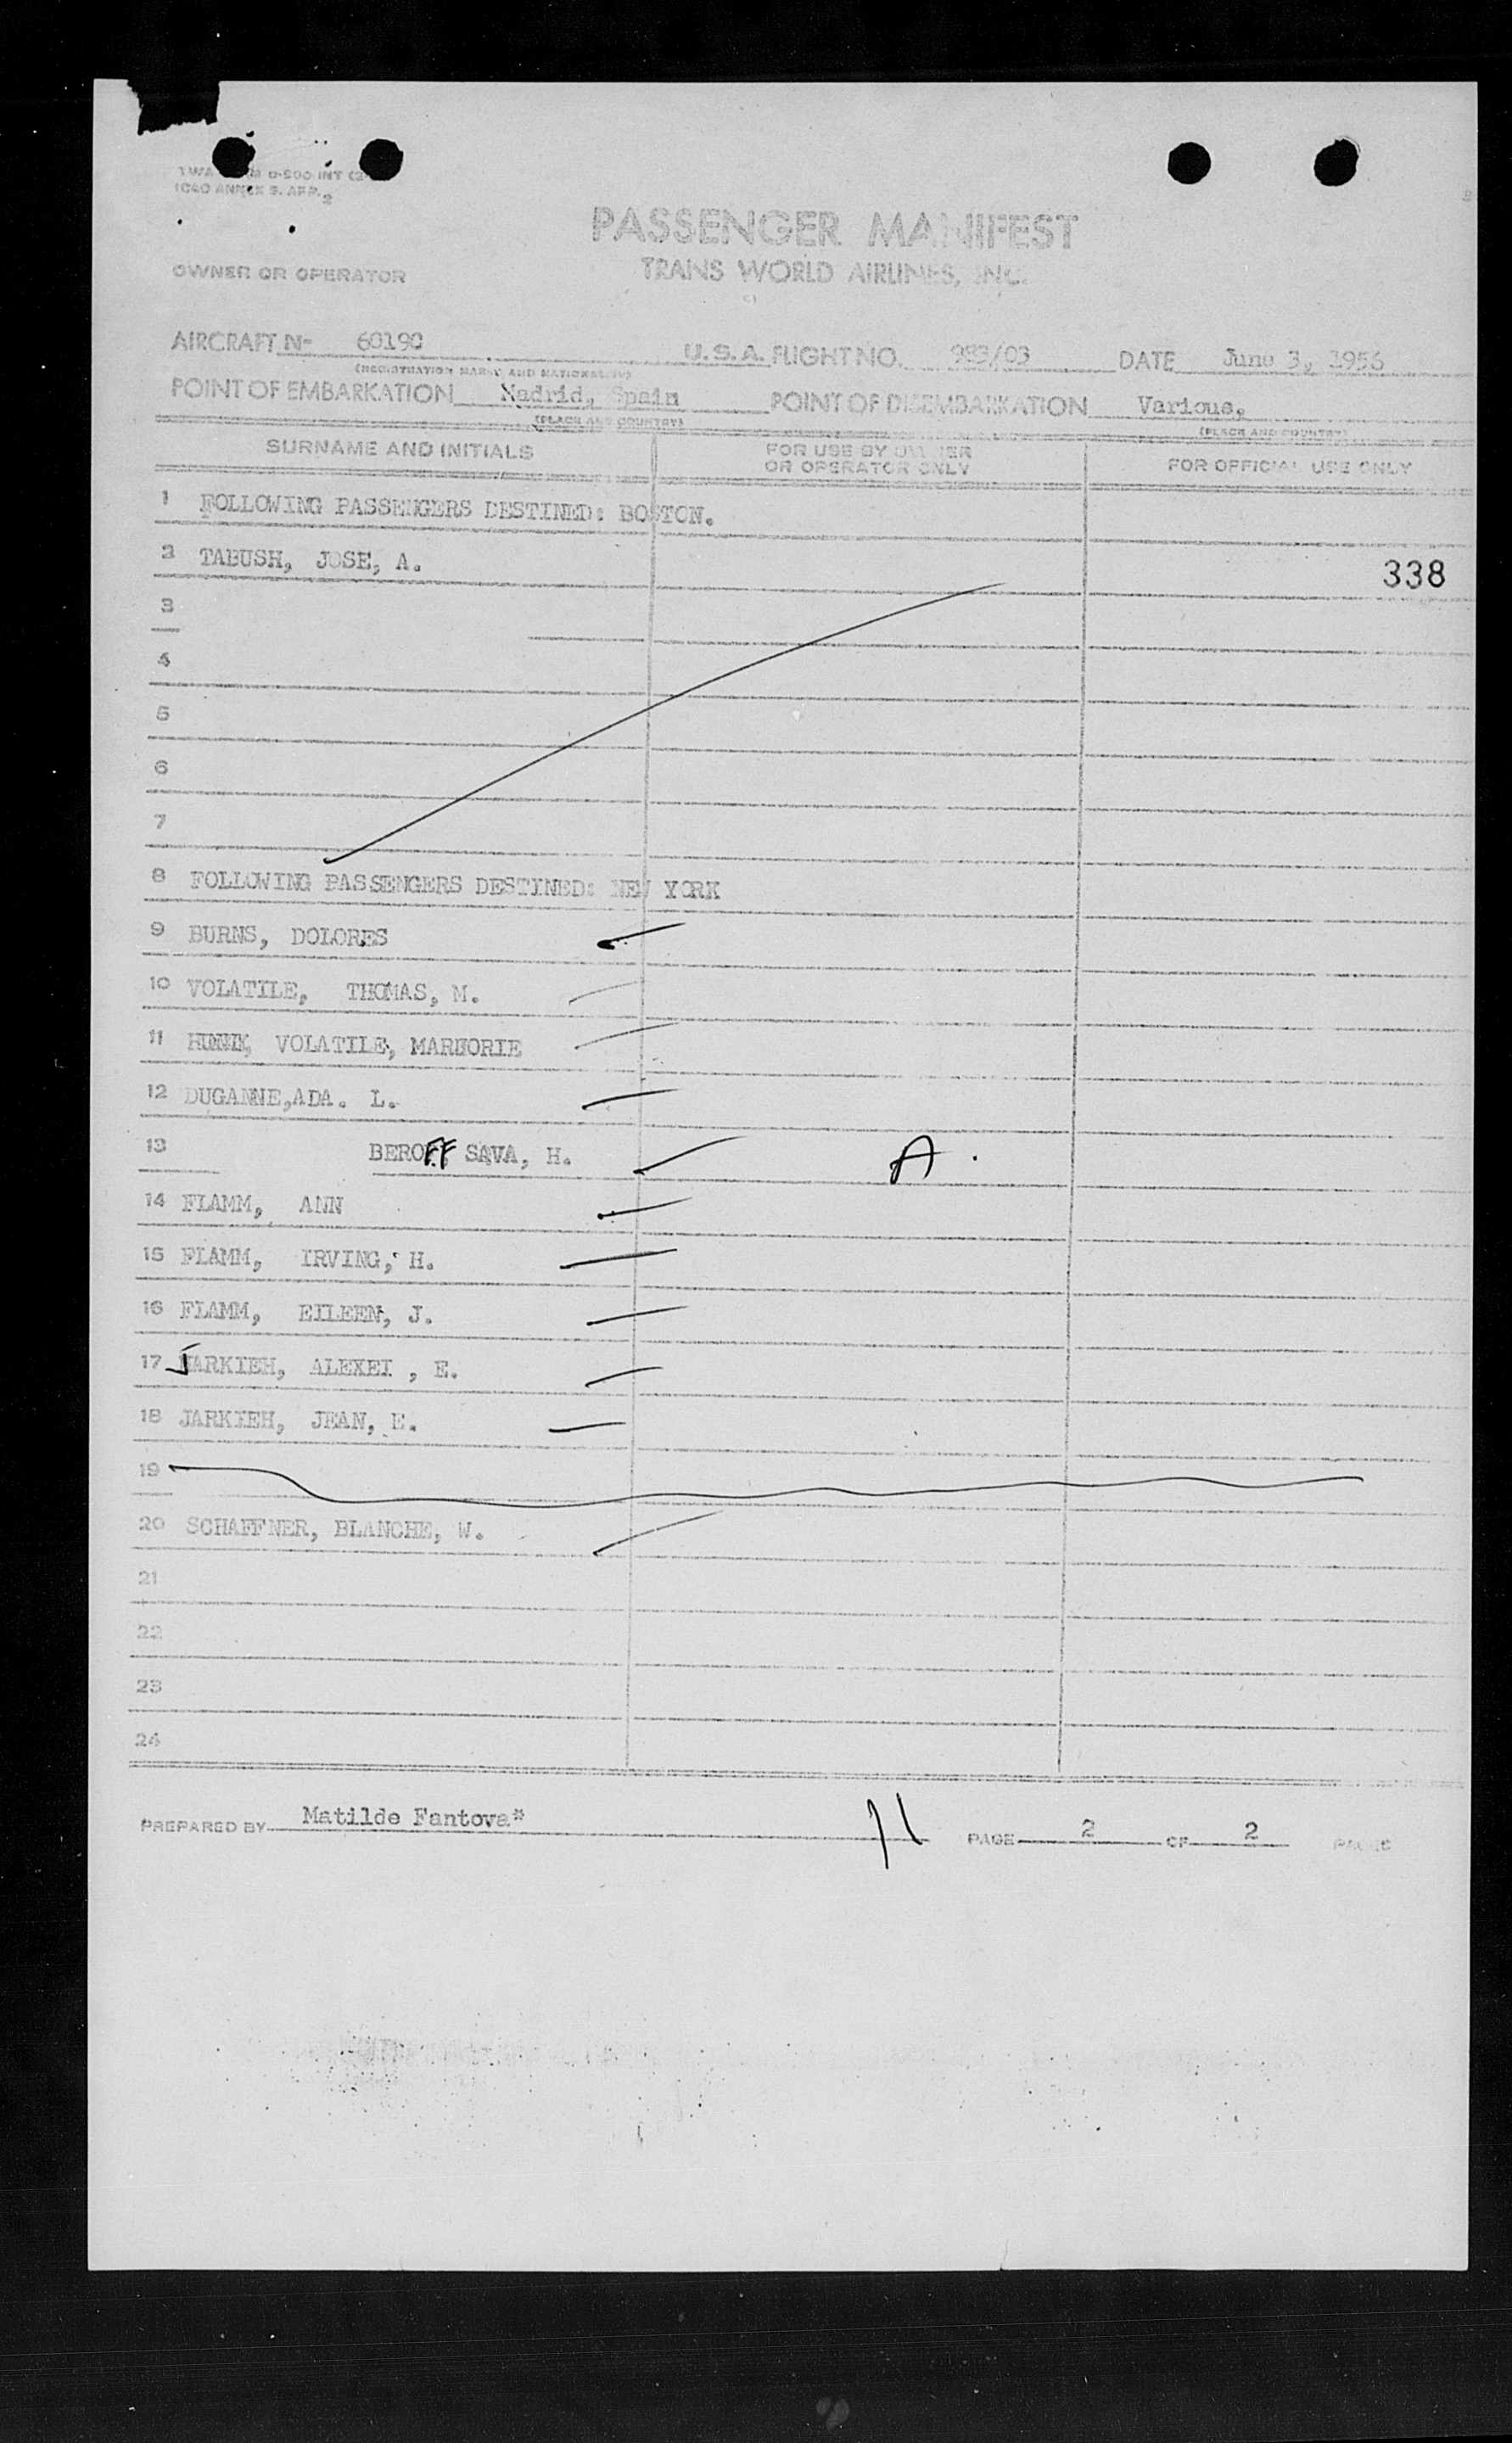 ICAO ANNEX 9. APP. 2
PASSENGER MANIFEST
OWNER OR OPERATOR TRANS WORLD AIRLINES, INC.
AIRCRAFT N- 60190 U.S.A. FLIGHT NO. 983/03 DATE June 3, 1956
(REGISTRATION MARKS AND NATIONALITY)
POINT OF EMBARKATION Madrid, Spain POINT OF DISEMBARKATION Various,
(PLACE AND COUNTRY) (PLACE AND COUNTRY)
SURNAME AND INITIALS FOR USE BY OWNER OR OPERATOR ONLY FOR OFFICIAL USE ONLY
1 FOLLOWING PASSENGERS DESTINED: BOSTON.
2 TABUSH, JOSE, A. 338
3
4
5
6
7
8 FOLLOWING PASSENGERS DESTINED: NEW YORK
9 BURNS, DOLORES
10 VOLATILE, THOMAS, M.
11 VOLATILE, MARJORIE
12 DUGANNE,ADA. L.
13 BEROFF SAVA, H. A.
14 FLAMM, ANN
15 FLAMM, IRVING, H.
16 FLAMM, EILEEN, J.
17 JARKIEH, ALEXEI , E.
18 JARKIEH, JEAN, E.
19
20 SCHAFFNER, BLANCHE, W.
21
22
23
24
PREPARED BY Matilde Fantova* 71 PAGE 2 OF 2 PAGES